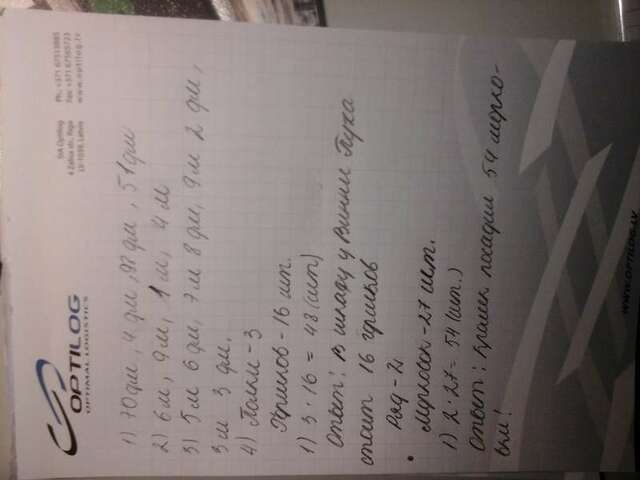 OPTILOG
OPTIMAL LOGISTICS
SIA Optilog
Ph: +371 67511085
Fax +371 67565723
www.optilog.lv
1) 70дм, 4дм, 98дм, 51дм
2) 6м, 9м, 1м, 4м
3) 5м 6дм, 7м 8дм, 9м 2дм,
3м 3дм.
4) Полки - 3
Горшков - 16 шт.
1) 3 · 16 = 48 (шт)
Ответ: В шкафу у Винни Пуха
стоит 16 горшков
Ряд - 2
Морковок - 27 шт.
1) 2 · 27 = 54 (шт.)
Ответ: Кролик посадил 54 морко-
вки!
www.optilog.lv